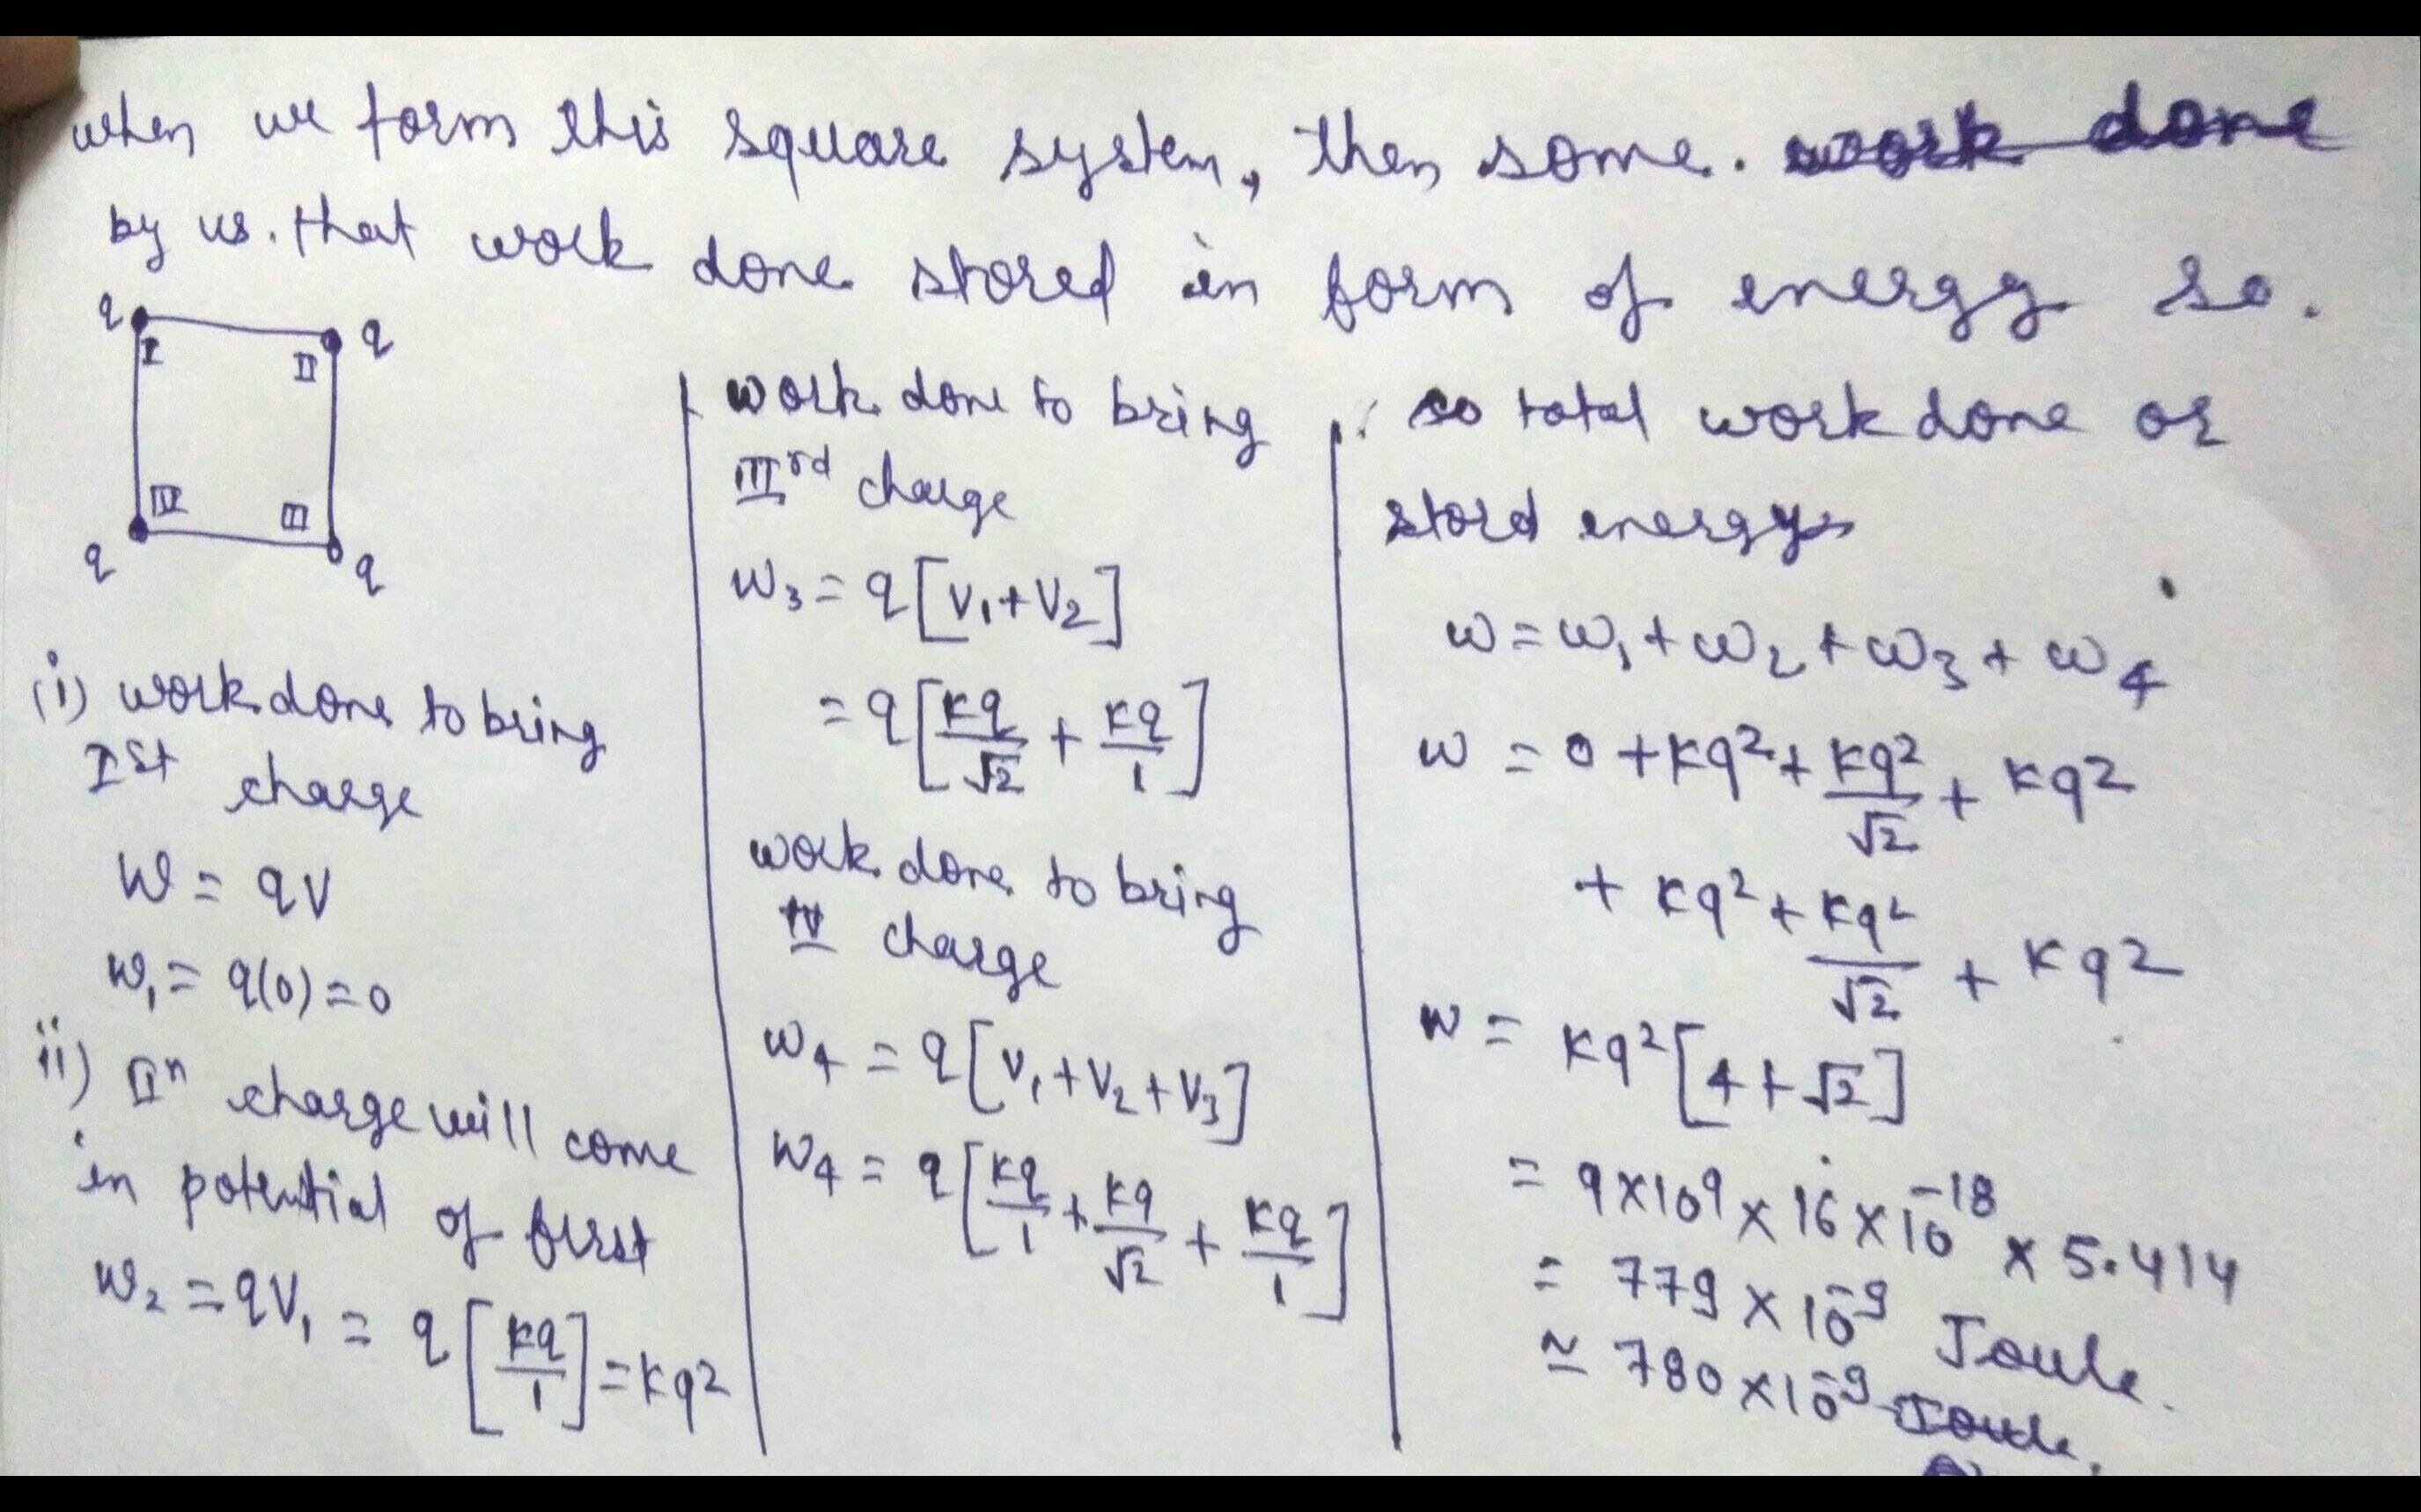 when we form this square system, then some. work done
by us. that work done stored in form of energy so.
q q
I II
IV III
q q
(i) work done to bring
Ist charge
W = qV
W₁ = q(0) = 0
ii) IIⁿ charge will come
in potential of first
W₂ = qV₁ = q[Kq/1] = Kq²
work done to bring
IIIrd charge
W₃ = q[V₁+V₂]
= q[Kq/√2 + Kq/1]
work done to bring
IV charge
W₄ = q[V₁+V₂+V₃]
W₄ = q[Kq/1 + Kq/√2 + Kq/1]
so total work done or
stord energy
W = W₁ + W₂ + W₃ + W₄
W = 0 + Kq² + Kq²/√2 + Kq²
+ Kq² + Kq²/√2 + Kq²
W = Kq²[4+√2]
= 9×10⁹ × 16×10⁻¹⁸ × 5.414
= 779 × 10⁻⁹ Joule.
≃ 780 × 10⁻⁹ Joule.